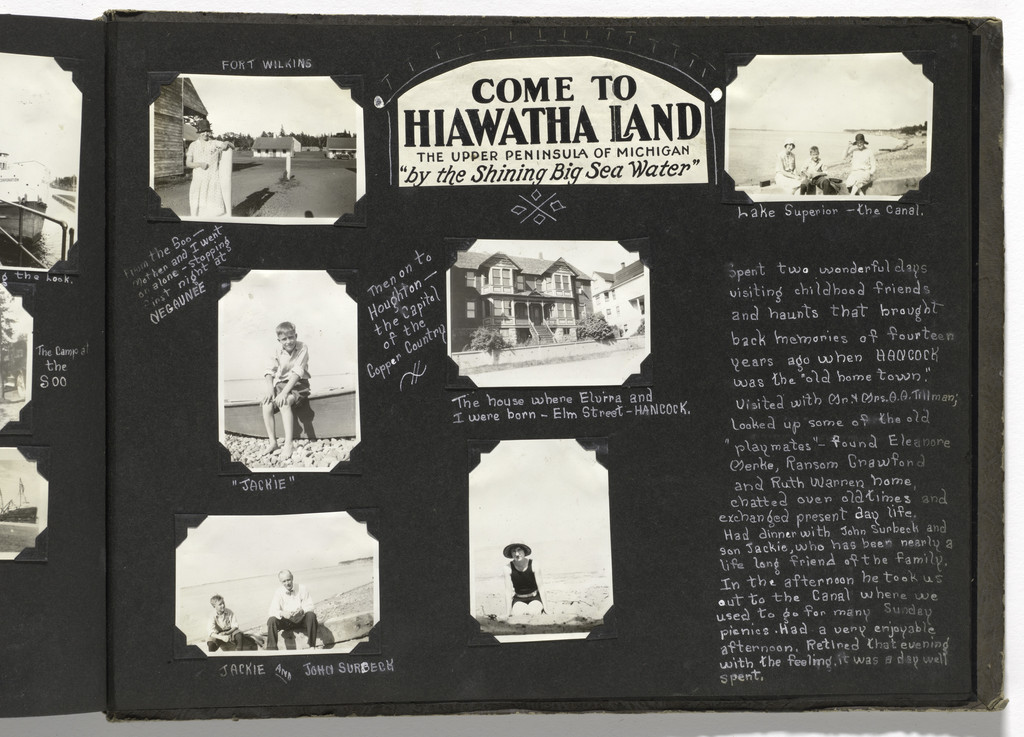 g the Look.
The Camp at
the
SOO
FORT WILKINS
COME TO
HIAWATHA LAND
THE UPPER PENINSULA OF MICHIGAN
"by the Shining Big Sea Water"
Lake Superior - the Canal.
From the Soo -
Mother and I went
on alone - stopping
first night at
NEGAUNEE
Then on to
Houghton -
the Capitol
of the
Copper Country
"JACKIE"
The house where Elvira and
I were born - Elm Street - HANCOCK.
JACKIE AND JOHN SURBECK
Spent two wonderful days
visiting childhood friends
and haunts that brought
back memories of fourteen
years ago when HANCOCK
was the "old home town."
Visited with Mr. & Mrs. O.A. Tillman;
looked up some of the old
"playmates" - found Eleanore
Merke, Ransom Crawford
and Ruth Warren home,
chatted over old times and
exchanged present day life.
Had dinner with John Surbeck and
son Jackie, who has been nearly a
life long friend of the family.
In the afternoon he took us
out to the Canal where we
used to go for many Sunday
picnics. Had a very enjoyable
afternoon. Retired that evening
with the feeling, it was a day well
spent.